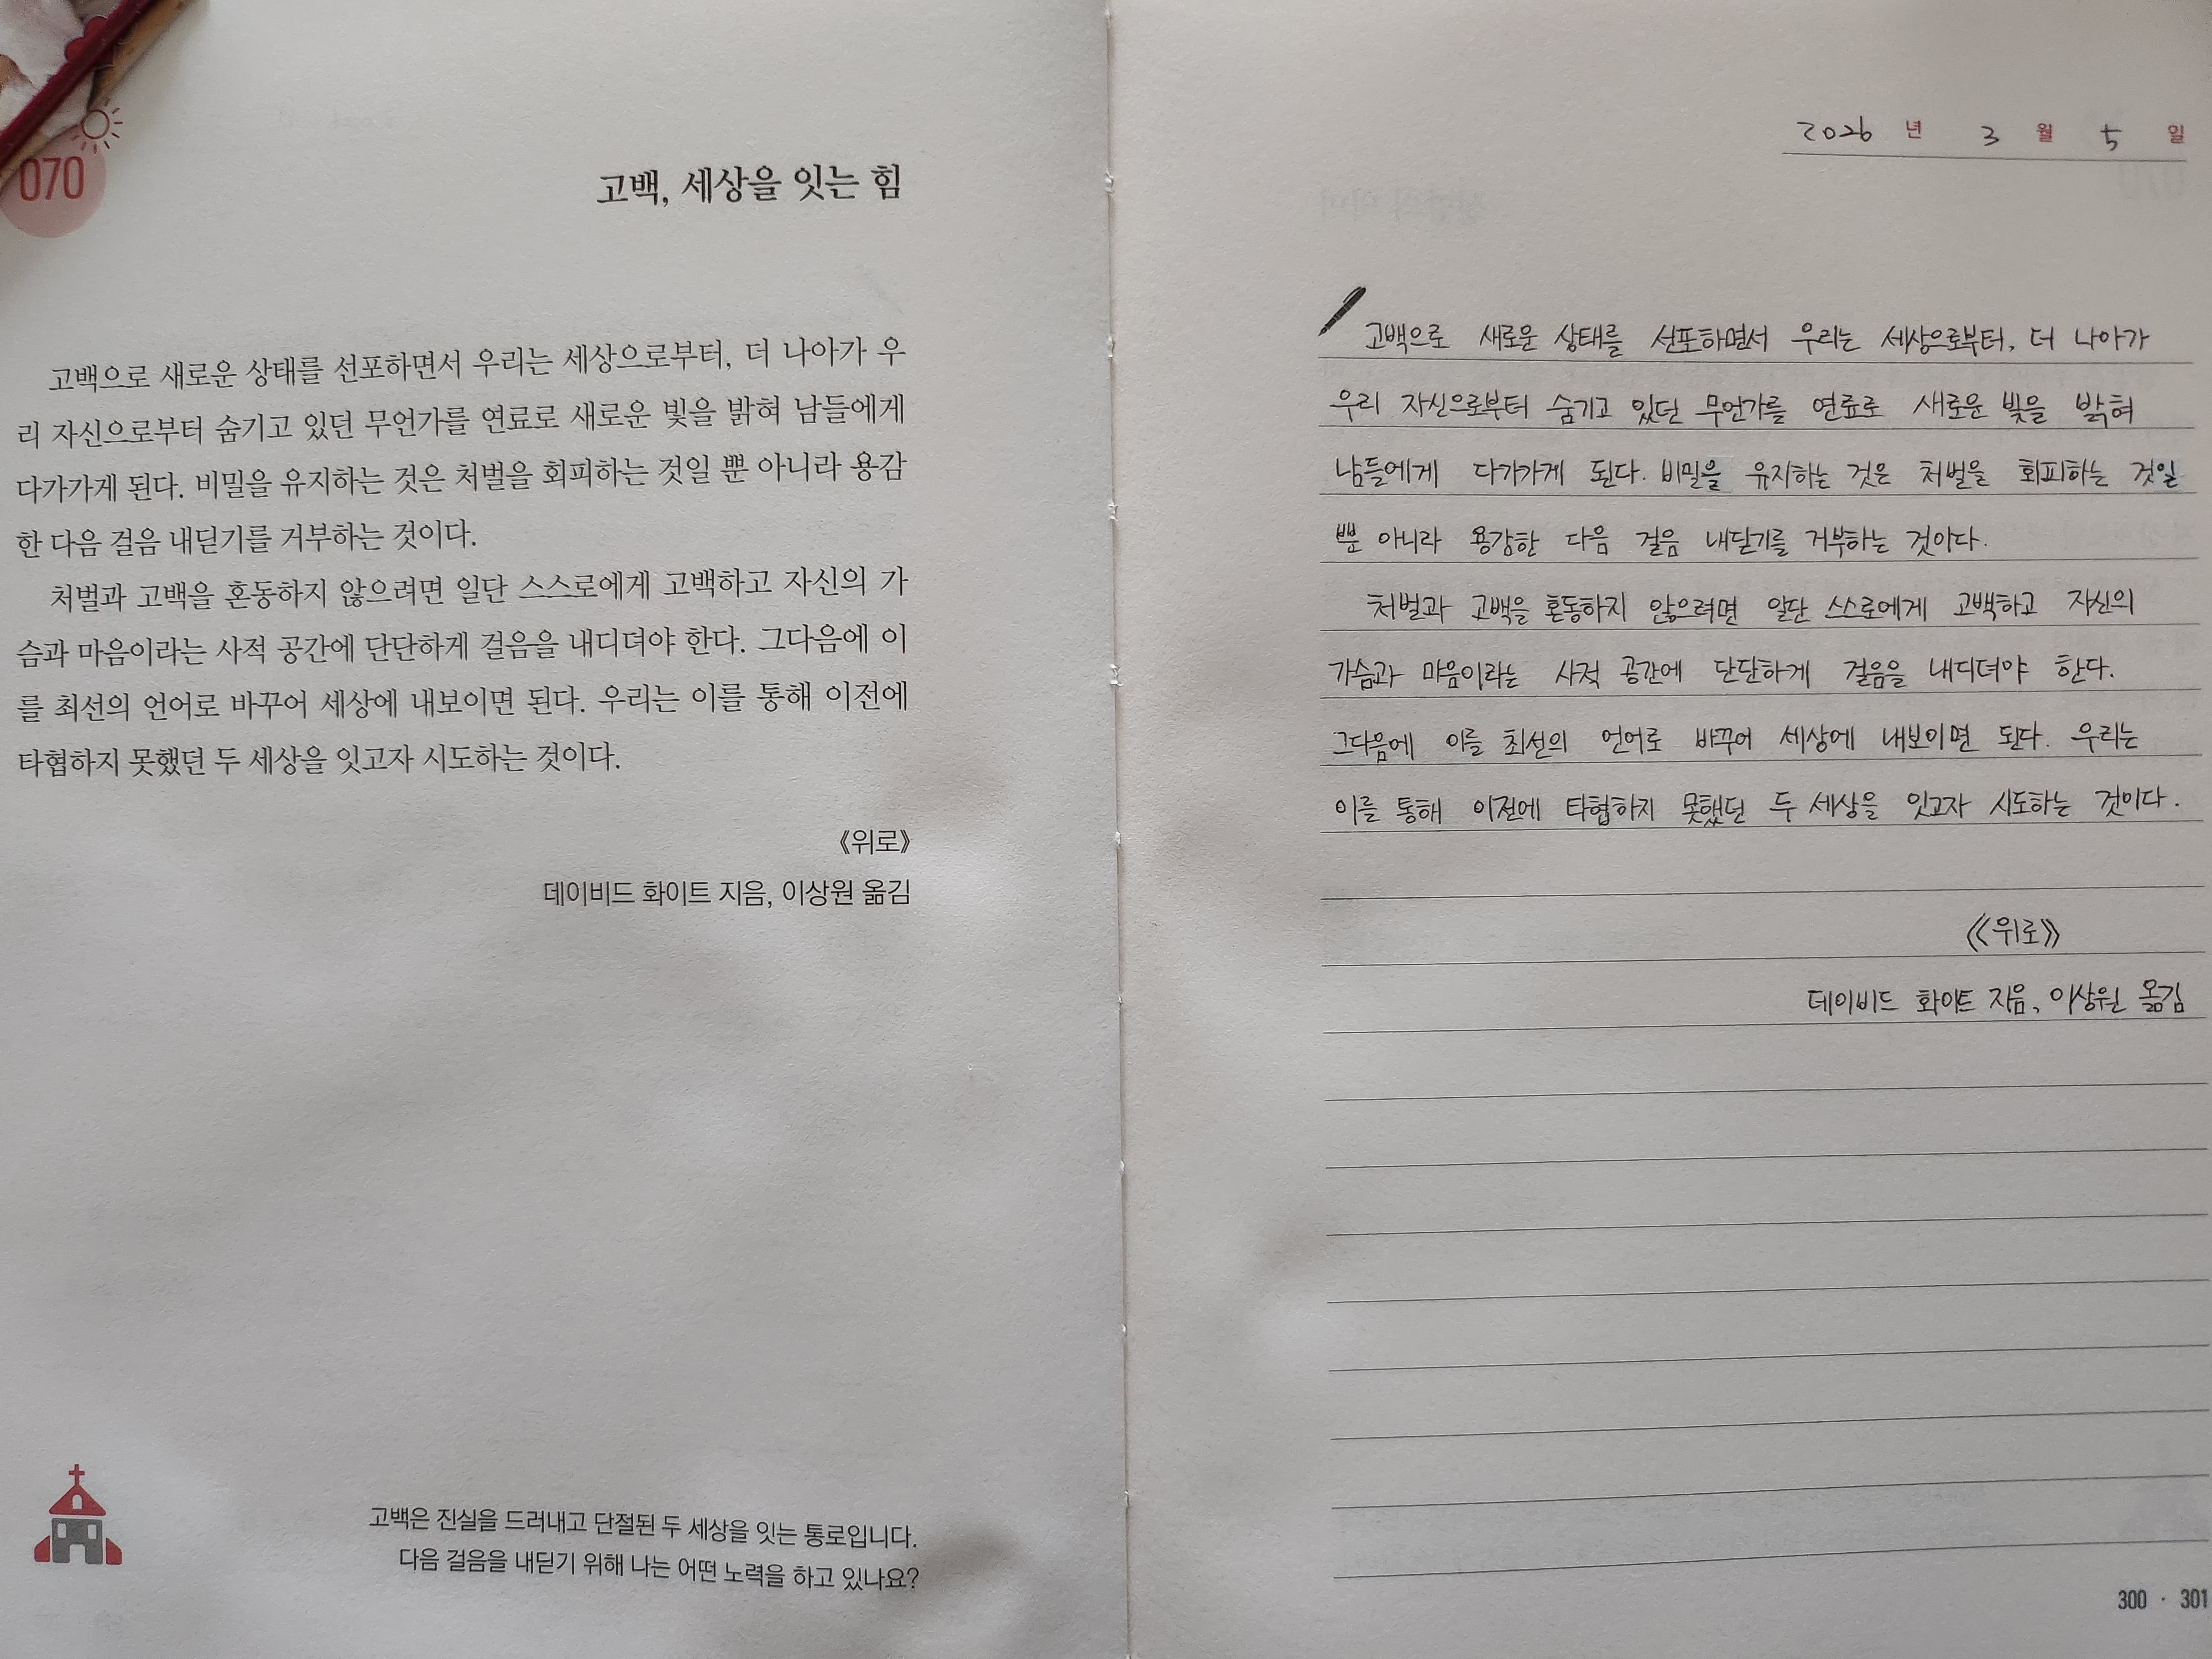 070
고백, 세상을 잇는 힘
고백으로 새로운 상태를 선포하면서 우리는 세상으로부터, 더 나아가 우
리 자신으로부터 숨기고 있던 무언가를 연료로 새로운 빛을 밝혀 남들에게
다가가게 된다. 비밀을 유지하는 것은 처벌을 회피하는 것일 뿐 아니라 용감
한 다음 걸음 내딛기를 거부하는 것이다.
처벌과 고백을 혼동하지 않으려면 일단 스스로에게 고백하고 자신의 가
슴과 마음이라는 사적 공간에 단단하게 걸음을 내디뎌야 한다. 그다음에 이
를 최선의 언어로 바꾸어 세상에 내보이면 된다. 우리는 이를 통해 이전에
타협하지 못했던 두 세상을 잇고자 시도하는 것이다.
《위로》
데이비드 화이트 지음, 이상원 옮김
고백은 진실을 드러내고 단절된 두 세상을 잇는 통로입니다.
다음 걸음을 내딛기 위해 나는 어떤 노력을 하고 있나요?
2026 년 3 월 5 일
고백으로 새로운 상태를 선포하면서 우리는 세상으로부터, 더 나아가
우리 자신으로부터 숨기고 있던 무언가를 연료로 새로운 빛을 밝혀
남들에게 다가가게 된다. 비밀을 유지하는 것은 처벌을 회피하는 것일
뿐 아니라 용감한 다음 걸음 내딛기를 거부하는 것이다.
처벌과 고백을 혼동하지 않으려면 일단 스스로에게 고백하고 자신의
가슴과 마음이라는 사적 공간에 단단하게 걸음을 내디뎌야 한다.
그다음에 이를 최선의 언어로 바꾸어 세상에 내보이면 된다. 우리는
이를 통해 이전에 타협하지 못했던 두 세상을 잇고자 시도하는 것이다.
《위로》
데이비드 화이트 지음, 이상원 옮김
300 · 301